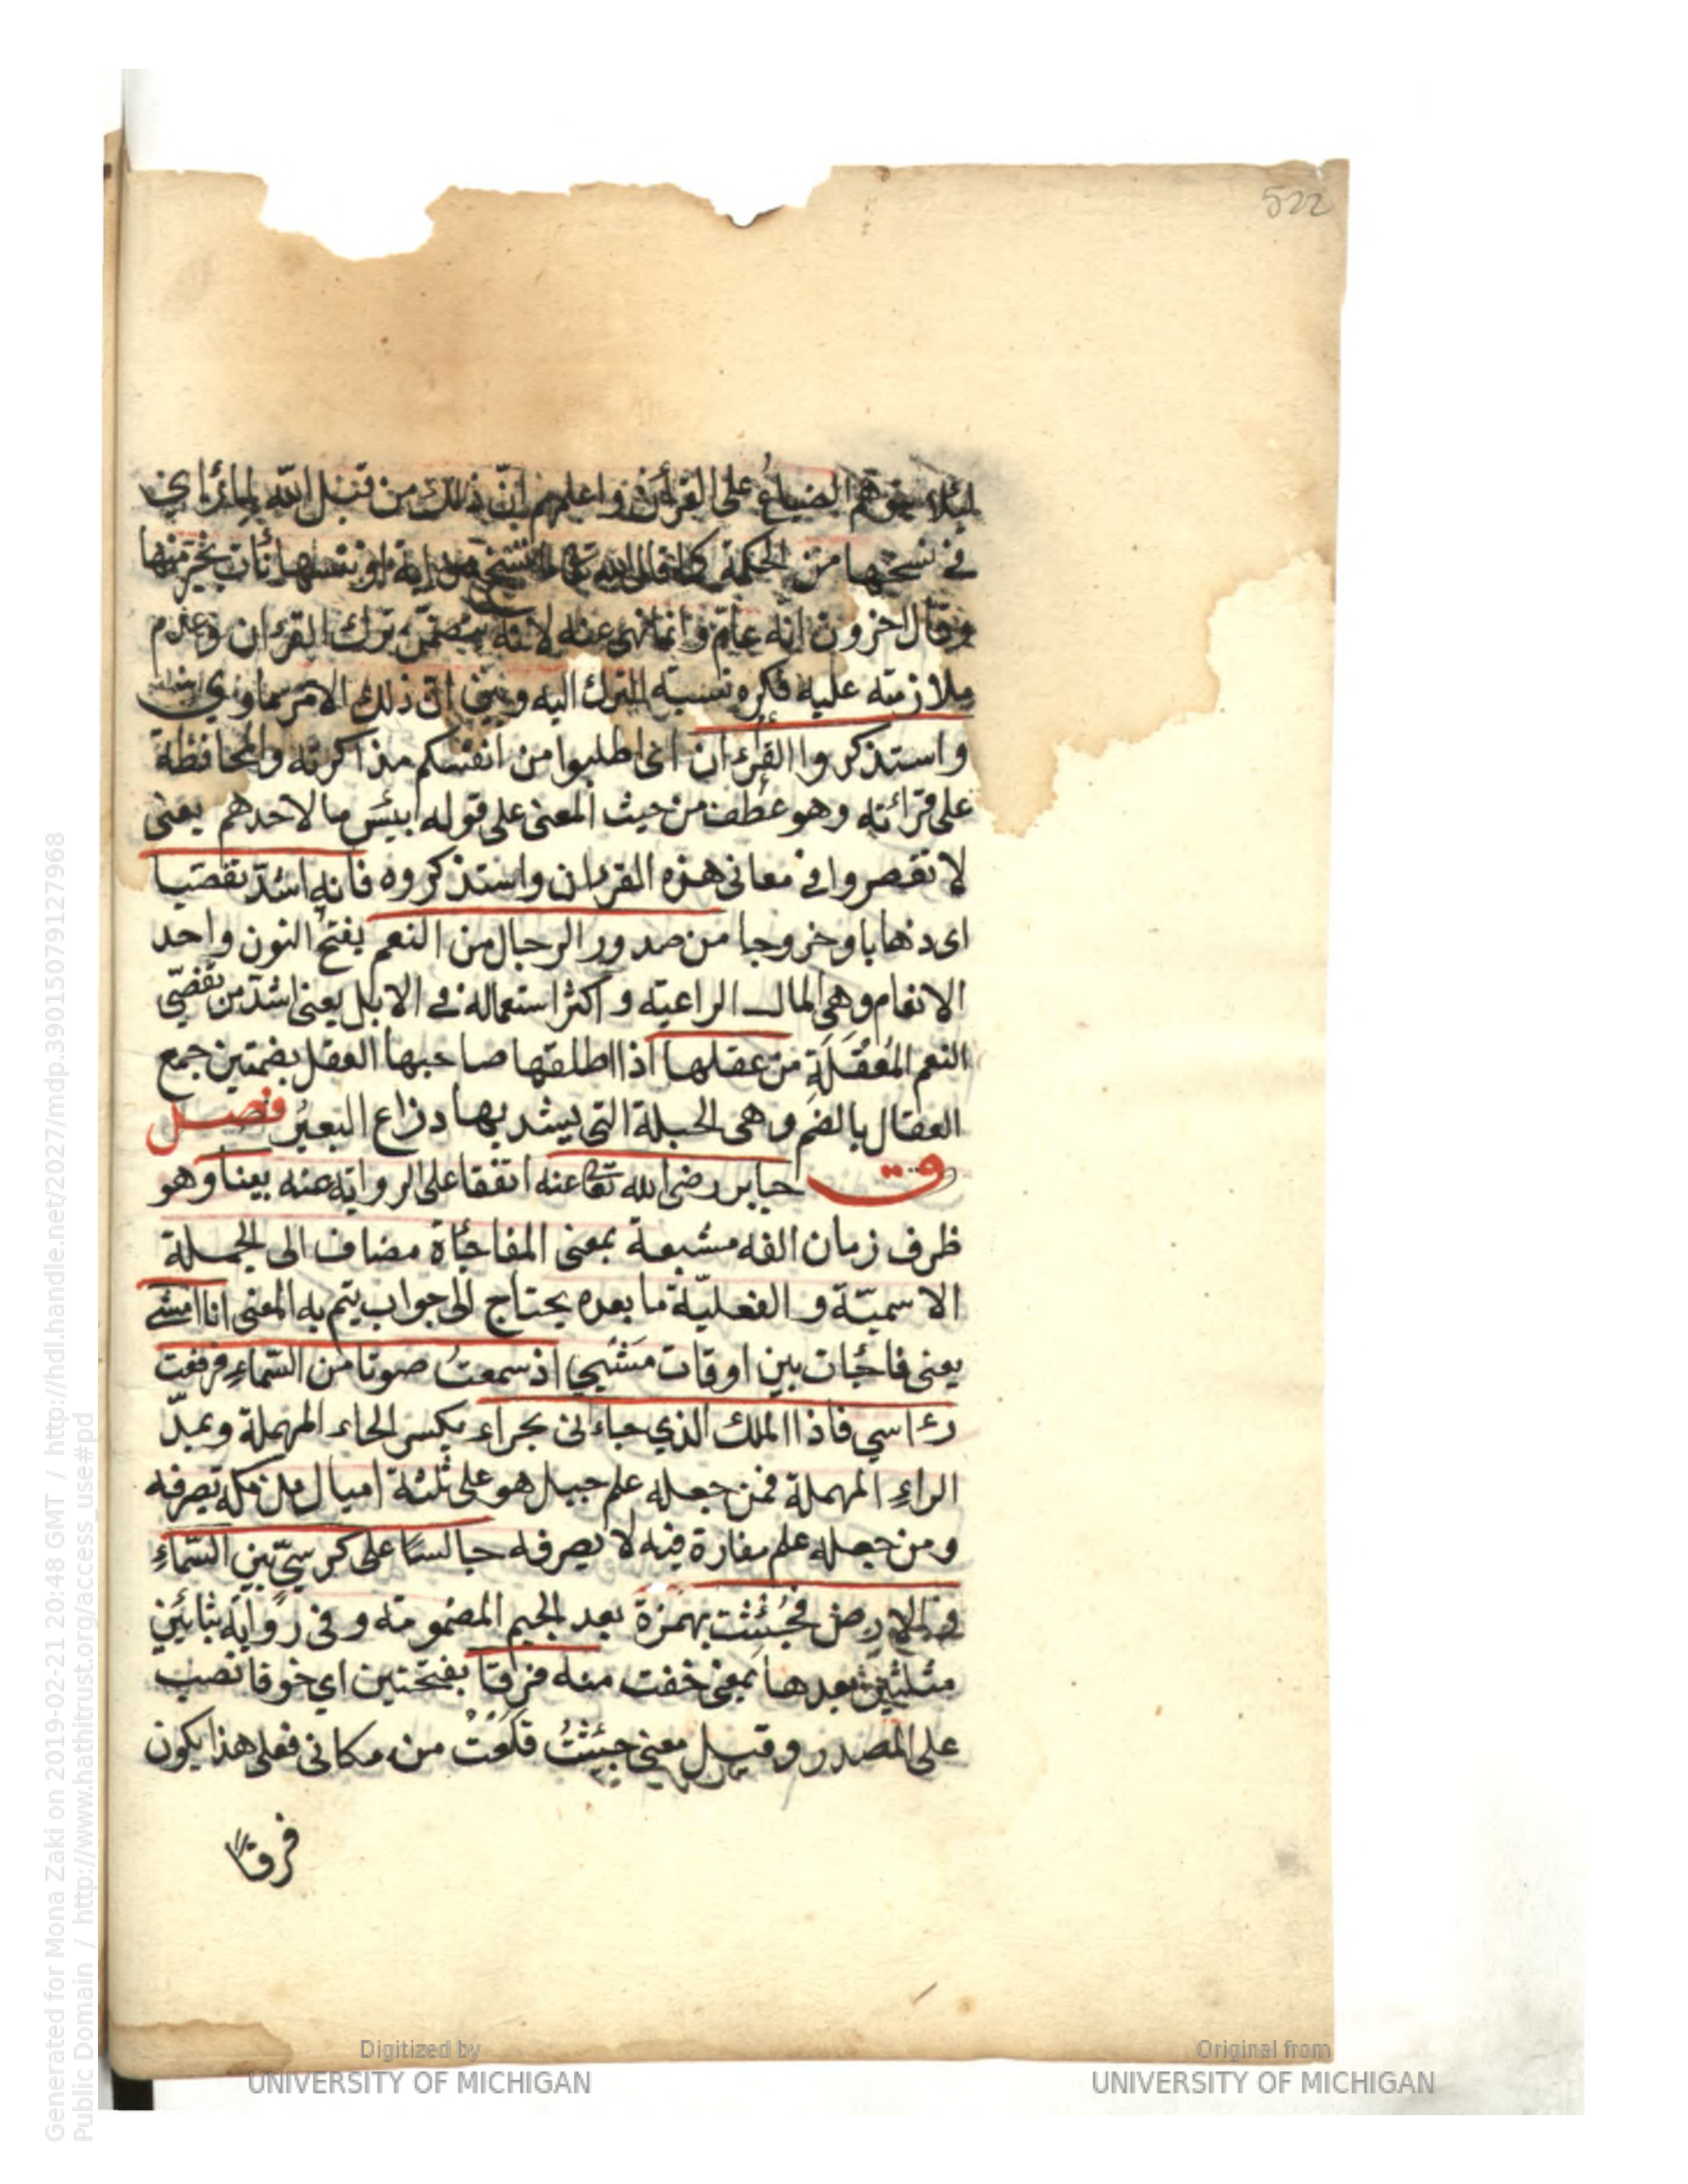 522
لئلا يتوهم الضياع على القرأن واعلمهم ان ذلك من قبل الله لما رأى
في نسخها من الحكمة كما قال الله تعا ما ننسخ من اية او ننسها نأت بخير منها
وقال اخرون انه عامّ وانما نهى عنه لانه يتضمن ترك القرءان وعدم
ملازمته عليه فكره نسبة الترك اليه ان ذلك الامر سماوي
واستذكروا القرءان اى اطلبوا من انفسكم مذاكرته والمحافظة
على قرائته وهو عطف من حيث المعنى على قوله بئس ما لاحدهم يعنى
لا تقصروا في معانى هذه القرءان واستذكروه فانه اشدّ تفصيا
اى ذهابا وخروجا من صدور الرجال من النعم بفتح النون واحد
الانعام وهى المال الراعية و اكثر استعماله في الابل يعنى اشدّ من تفصّى
النعم المعقلة من عقلها اذا اطلقها صاحبها العقل بضمتين جمع
العقال بالضم وهى الحبلة التى يشد بها ذراع البعير فصل
ق جابر رضى الله تعا عنه اتفقا على الرواية عنه بينا وهو
ظرف زمان الفه مشبعة بمعنى المفاجأة مضاف الى الجملة
الاسميّة و الفعليّة ما بعده يحتاج الى جواب يتم به المعنى انا امشى
يعنى فاجأت بين اوقات مشيى اذ سمعتُ صوتا من السماءِ فرفعت
رءاسي فاذا الملك الذي جاءنى بحراء بكسر الحاء المهملة وبمدّ
الراءِ المهملة فمن جعله علم جبل هو على ثلثة اميال من مكة يصرفه
ومن جعله علم مغارة فيه لا يصرفه جالسًا على كرسيّ بين السّماءِ
والارض فجُئثت بهمزة بعد الجيم المضمومة و فى رواية بثائين
مثلثين بعدها بمعنى خفت منه فرقا بفتحتين اي خوفا نصب
على المصدر وقيل معنى جئثتُ قلعت من مكانى فعلى هذا يكون
فرقا
Generated for Mona Zaki on 2019-02-21 20:48 GMT / http://hdl.handle.net/2027/mdp.39015079127968
Public Domain / http://www.hathitrust.org/access_use#pd
Digitized by
UNIVERSITY OF MICHIGAN
Original from
UNIVERSITY OF MICHIGAN